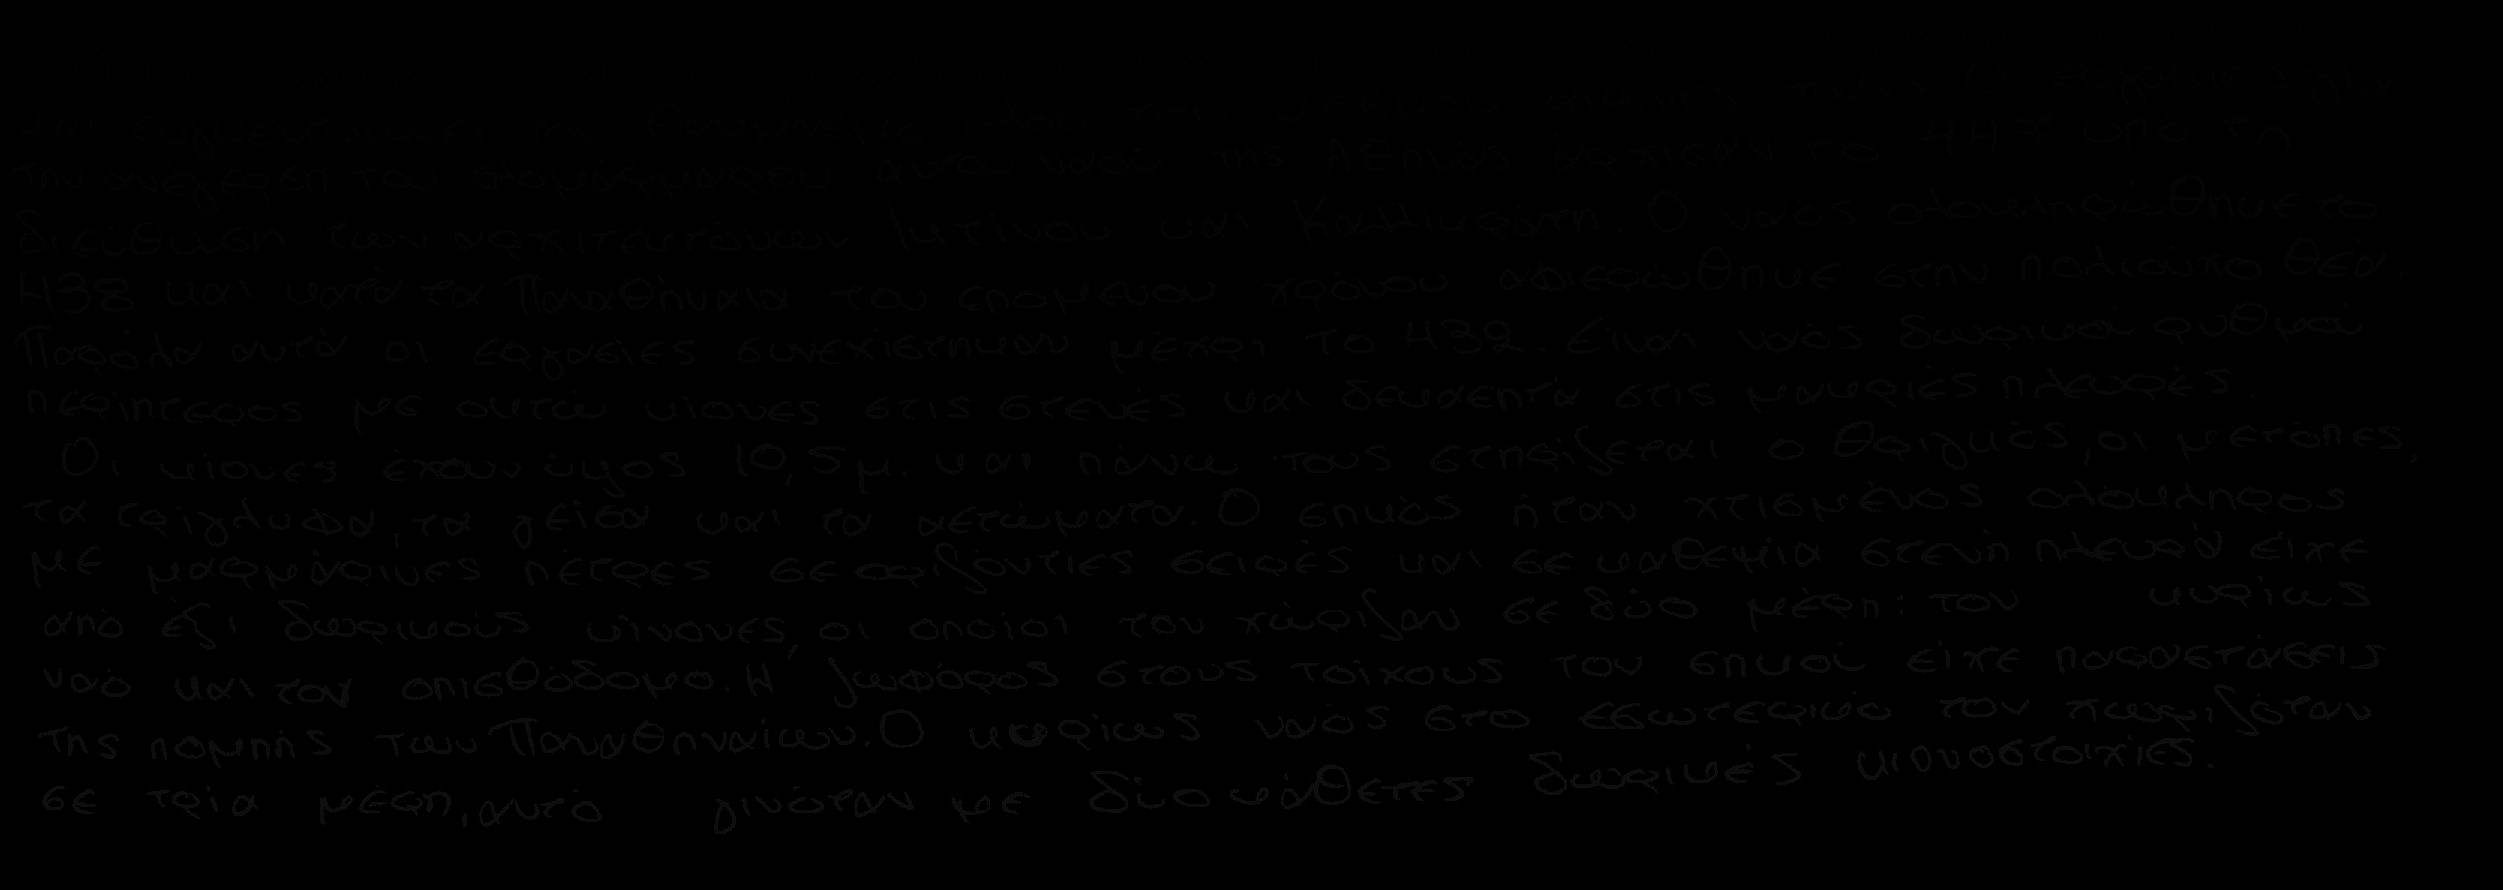 και συγκεντρώνει τον θαυμασμό όλου του κόσμου αιώνες τώρα. Οι εργασίες για
την ανέγερση του ολομάρμαρου αυτού ναού της Αθηνάς αρχισαν το 447 υπό τη
διεύθυνση των αρχιτεκτόνων Ικτίνου και Καλλικράτη. Ο ναός ολοκληρώθηκε το
438 και κατά τα Παναθήναια του επόμενου χρόνου αφιερώθηκε στην πολιούχο θέα.
Παρόλα αυτά οι εργασίες συνεχίστηκαν μέχρι το 432. Είναι ναός δωρικού ρυθμού
περίπτερος με οκτώ κίονες στις στενές και δεκαεπτά στις μακριές πλευρές.
Οι κίονες έχουν ύψος 10,5μ. και πάνω τους στηρίζεται ο θριγκός, οι μετόπες,
τα τρίγλυφα, τα γείσα και τα αετώματα. Ο σηκός ήταν χτισμένος ολόκληρος
με μαρμάρινες πέτρες σε οριζόντιες σειρές και σε καθεμία στενή πλευρά είχε
από έξι δωρικούς κίονες, οι οποίοι τον χώριζαν σε δύο μέρη: τον κυρίως
ναό και τον οπισθόδομο. Η ζωφόρος στους τοίχους του σηκού είχε παραστάσεις
της πομπής των Παναθηναίων. Ο κυρίως ναός στο εσωτερικό του χωριζόταν
σε τρία μέρη, αυτό γινόταν με δύο κάθετες δωρικές κιονοστοιχίες.